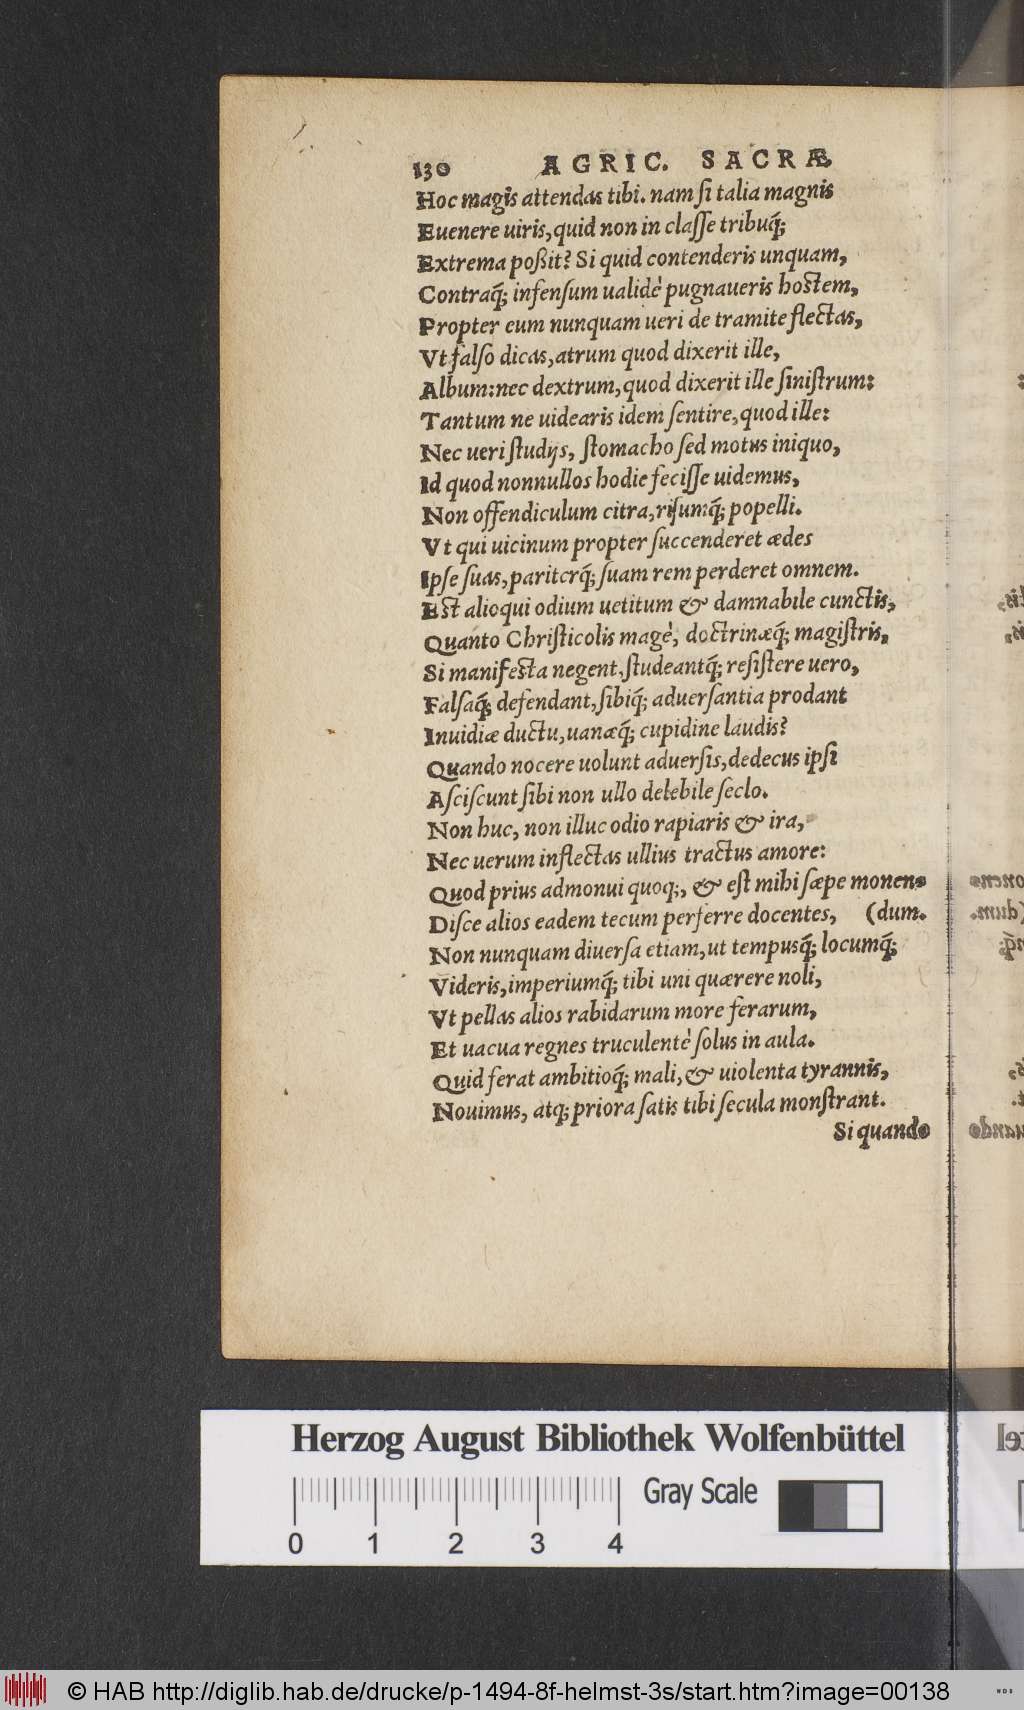 130 AGRIC. SACRÆ
Hoc magis attendas tibi. nam ſi talia magnis
Euenere uiris, quid non in claſſe tribuq́;
Extrema poßit? Si quid contenderis unquam,
Contraq́; infenſum ualidè pugnaueris hostem,
Propter eum nunquam ueri de tramite flectas,
Vt falſo dicas, atrum quod dixerit ille,
Album: nec dextrum, quod dixerit ille ſiniſtrum:
Tantum ne uidearis idem ſentire, quod ille:
Nec ueri ſtudijs, ſtomacho ſed motus iniquo,
Id quod nonnullos hodie feciſſe uidemus,
Non offendiculum citra, riſumq́; popelli.
Vt qui uicinum propter ſuccenderet ædes
Ipſe ſuas, pariterq́; ſuam rem perderet omnem.
Est alioqui odium uetitum & damnabile cunctis,
Quanto Chriſticolis magè, doctrinæq́; magiſtris,
Si manifesta negent, ſtudeantq́; reſiſtere uero,
Falſaq́; defendant, ſibiq́; aduerſantia prodant
Inuidiæ ductu, uanæq́; cupidine laudis?
Quando nocere uolunt aduerſis, dedecus ipſi
Aſciſcunt ſibi non ullo delebile ſeclo.
Non huc, non illuc odio rapiaris & ira,
Nec uerum inflectas ullius tractus amore:
Quod prius admonui quoq;, & eſt mihi ſæpe monen-
Diſce alios eadem tecum perferre docentes, (dum.
Non nunquam diuerſa etiam, ut tempusq́; locumq́;
Videris, imperiumq́; tibi uni quærere noli,
Vt pellas alios rabidarum more ferarum,
Et uacua regnes truculentè ſolus in aula.
Quid ferat ambitioq́; mali, & uiolenta tyrannis,
Nouimus, atq; priora ſatis tibi ſecula monſtrant.
Si quando
Herzog August Bibliothek Wolfenbüttel
Gray Scale
0 1 2 3 4
© HAB http://diglib.hab.de/drucke/p-1494-8f-helmst-3s/start.htm?image=00138